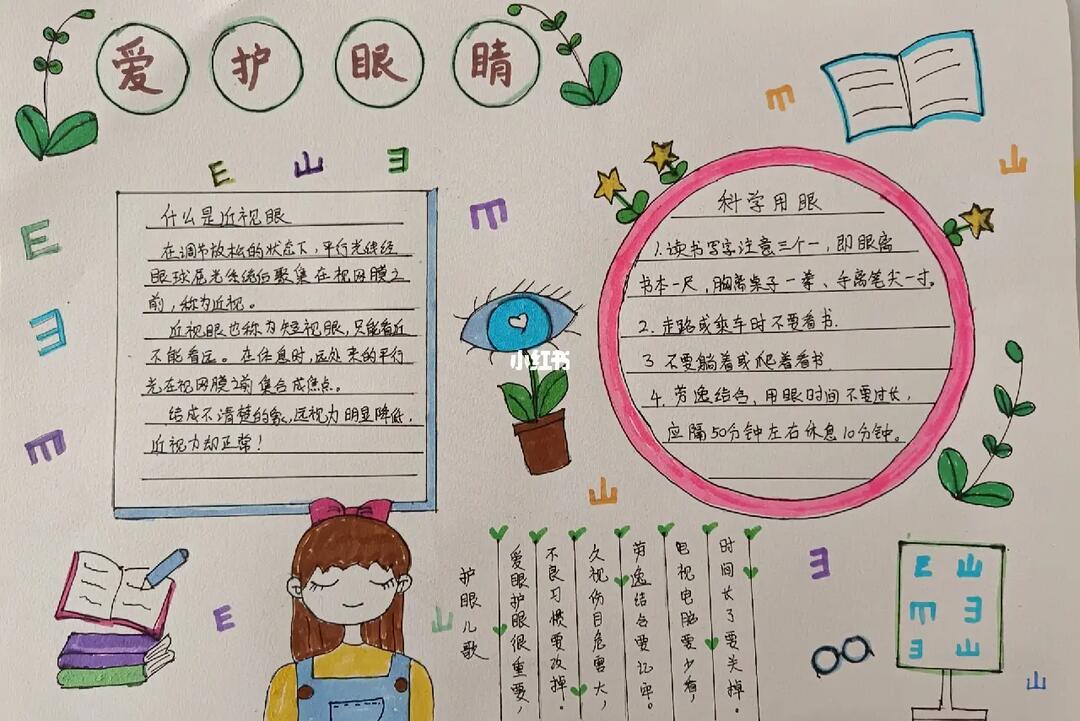 爱护眼睛
什么是近视眼
在调节放松的状态下，平行光线经
眼球屈光系统后聚集在视网膜之
前，称为近视。
近视眼也称为短视眼，只能看近
不能看远。在休息时，远处来的平行
光在视网膜之前集合成焦点。
结成不清楚的象，远视力明显降低，
近视力却正常！
小红书
科学用眼
1.读书写字注意三个一，即眼离
书本一尺，胸离桌子一拳、手离笔尖一寸。
2.走路或乘车时不要看书.
3 不要躺着或爬着看书
4.劳逸结合，用眼时间不要过长，
应隔50分钟左右休息10分钟。
护眼儿歌
爱眼护眼很重要，
不良习惯要改掉。
久视伤目危害大，
劳逸结合要记牢。
电视电脑要少看，
时间长了要关掉。